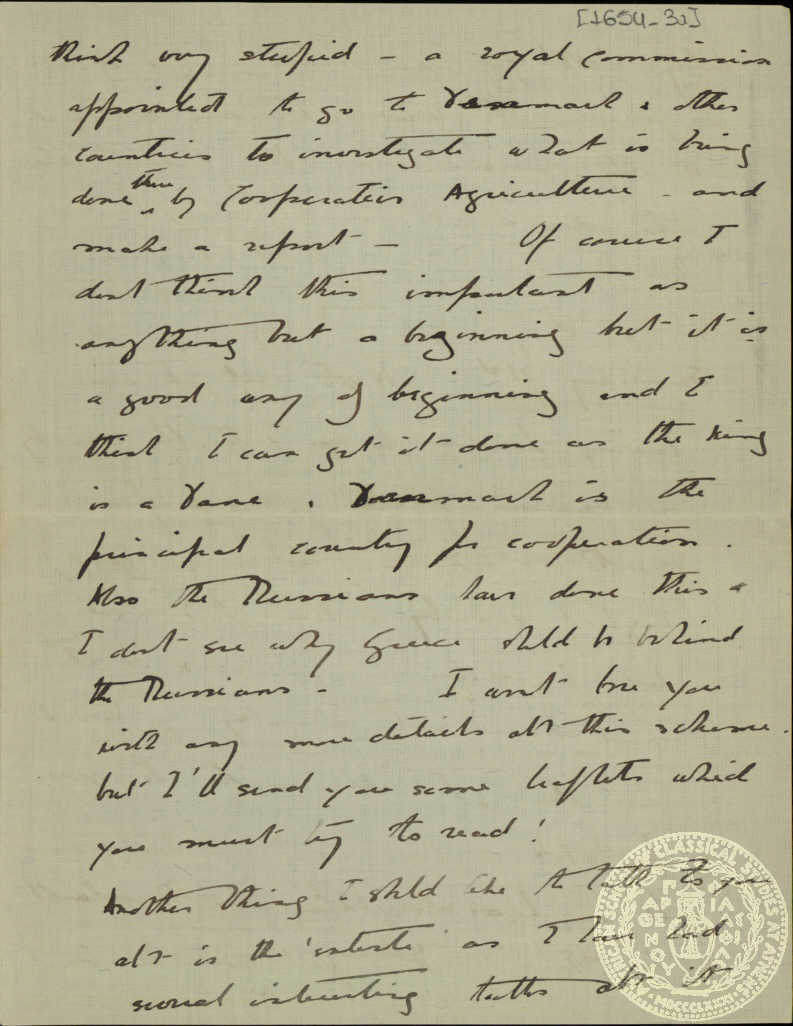 [1654-30]
think very stupid - a royal commission
appointed to go to Denmark & other
countries to investigate what is being
done there by Cooperation Agriculture - and
make a report - Of course I
dont think this important as
anything but a beginning but it is
a good way of beginning and I
think I can get it done as the King
is a Dane & Denmark is the
principal country for cooperation.
Also the Russians have done this &
I dont see why Greece shld be behind
the Russians - I wont bore you
with any more details abt this scheme.
but I'll send you some leaflets which
you must try to read!
Another thing I shld like to talk to you
abt is the as I have had
several interesting talks abt it
AMERICAN SCHOOL OF CLASSICAL STUDIES AT ATHENS
ΠΑΡΘΕΝΟΥ ΦΙΑΛ
MDCCCLXXXI